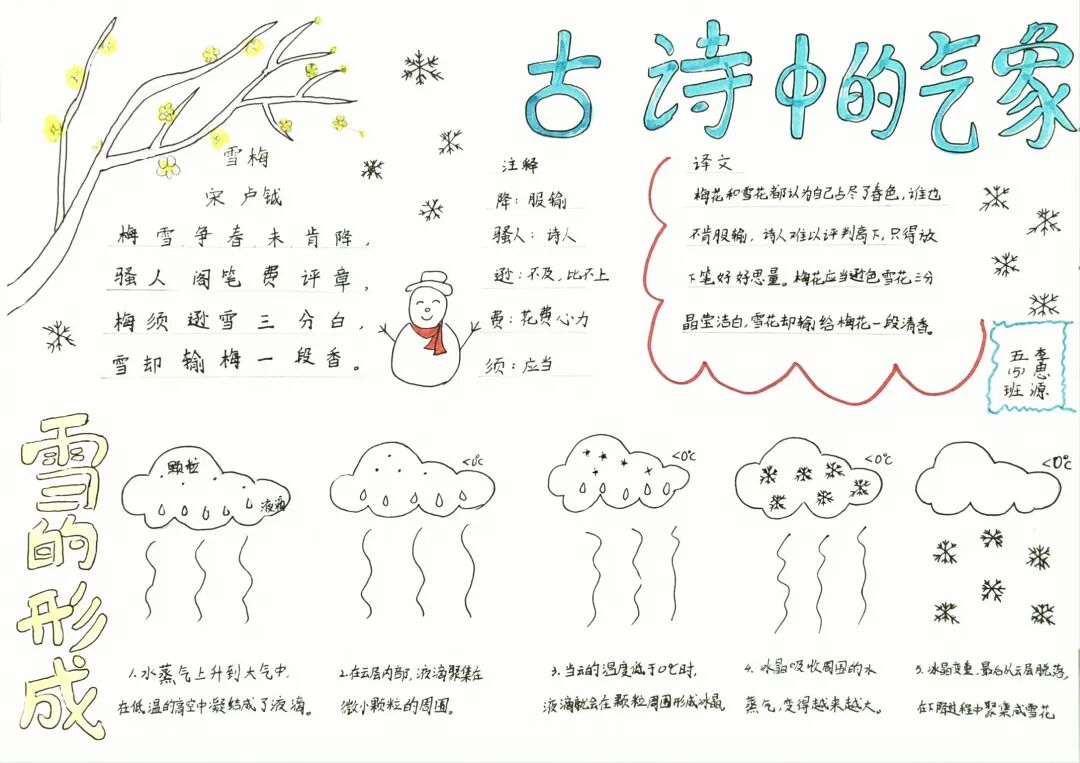 古诗中的气象
雪梅
宋 卢钺
梅雪争春未肯降，
骚人阁笔费评章，
梅须逊雪三分白，
雪却输梅一段香。
注释
降：服输
骚人：诗人
逊：不及，比不上
费：花费心力
须：应当
译文
梅花和雪花都认为自己占尽了春色，谁也
不肯服输，诗人难以评判高下，只得放
下笔好好思量。梅花应当逊色雪花三分
晶莹洁白，雪花却输给梅花一段清香。
五(5)班
李思源
雪的形成
颗粒
液滴
<0℃
<0℃
<0℃
<0℃
1.水蒸气上升到大气中，
在低温的高空中凝结成了液滴。
2.在云层内部，液滴聚集在
微小颗粒的周围。
3.当云的温度低于0℃时，
液滴就会在颗粒周围形成冰晶
4.冰晶吸收周围的水
蒸气，变得越来越大。
5.冰晶变重，最后从云层脱落，
在下降过程中聚集成雪花